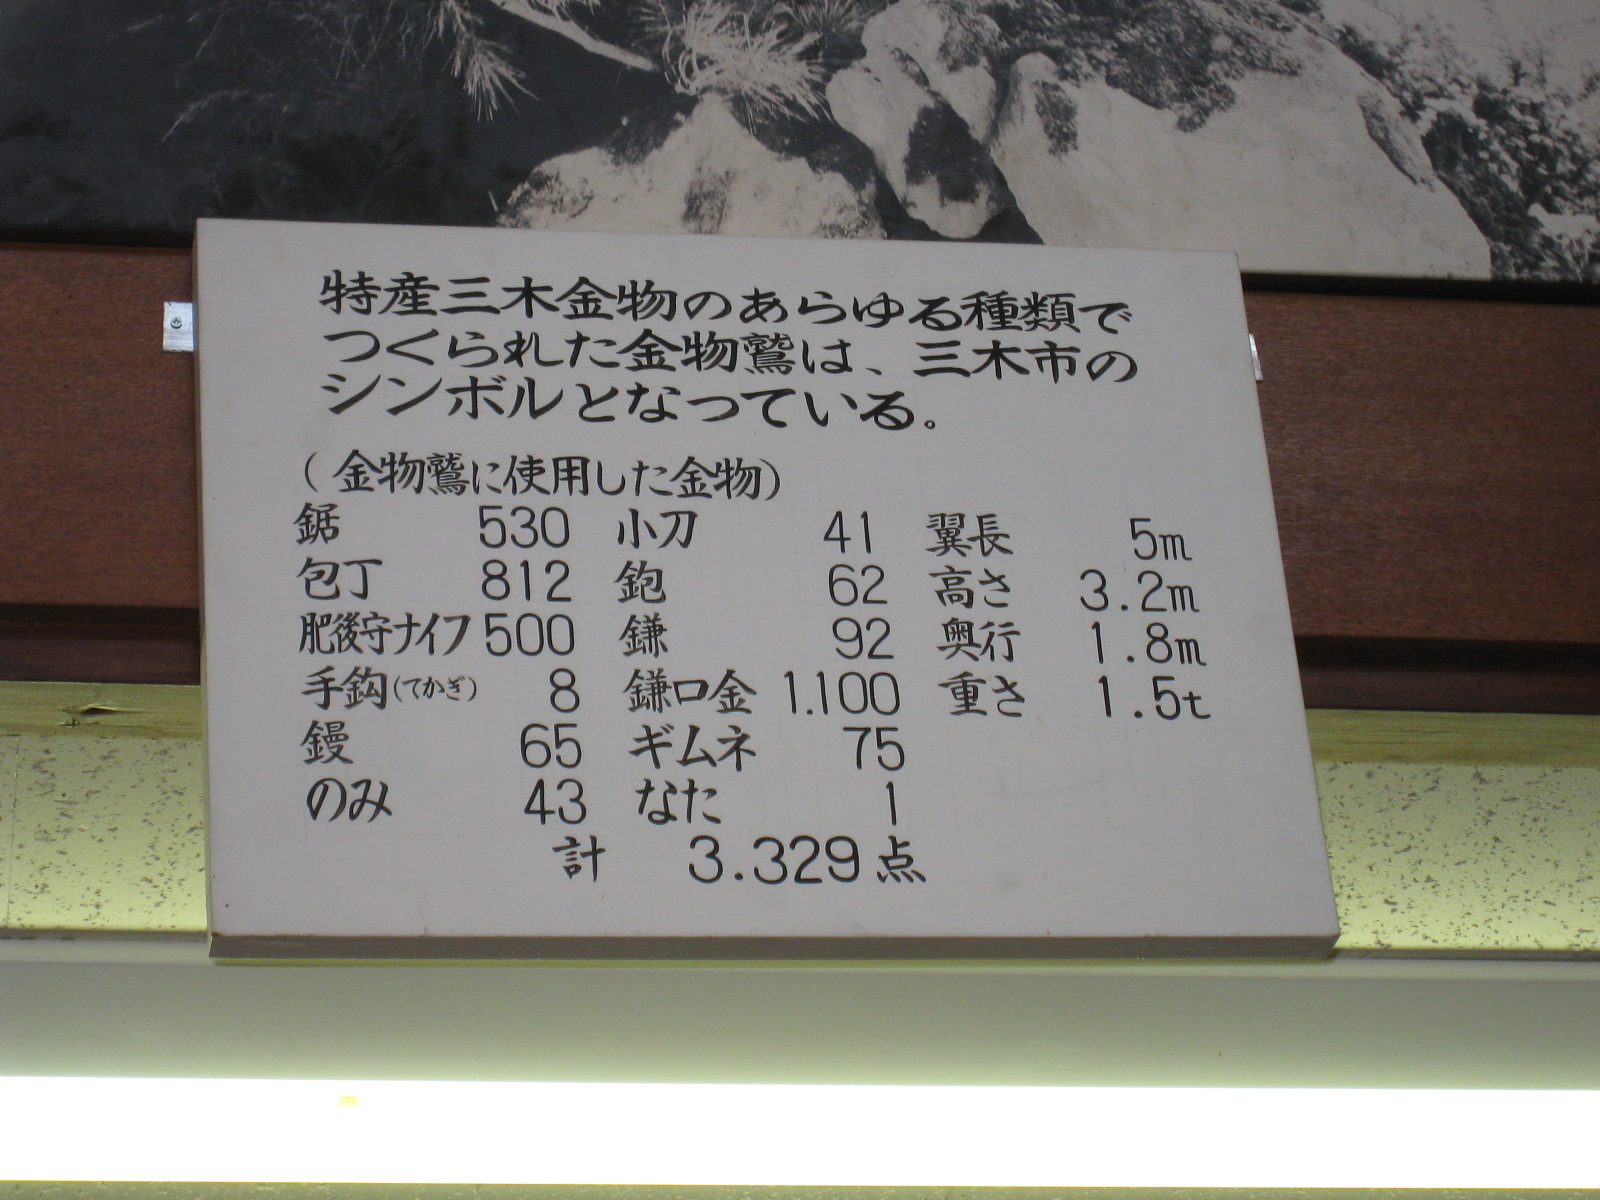 特産三木金物のあらゆる種類で
つくられた金物鷲は、三木市の
シンボルとなっている。
(金物鷲に使用した金物)
鋸 530 小刀 41 翼長 5m
包丁 812 鉋 62 高さ 3.2m
肥後守ナイフ 500 鎌 92 奥行 1.8m
手鈎(てかぎ) 8 鎌口金 1.100 重さ 1.5t
鏝 65 ギムネ 75
のみ 43 なた 1
計 3.329点